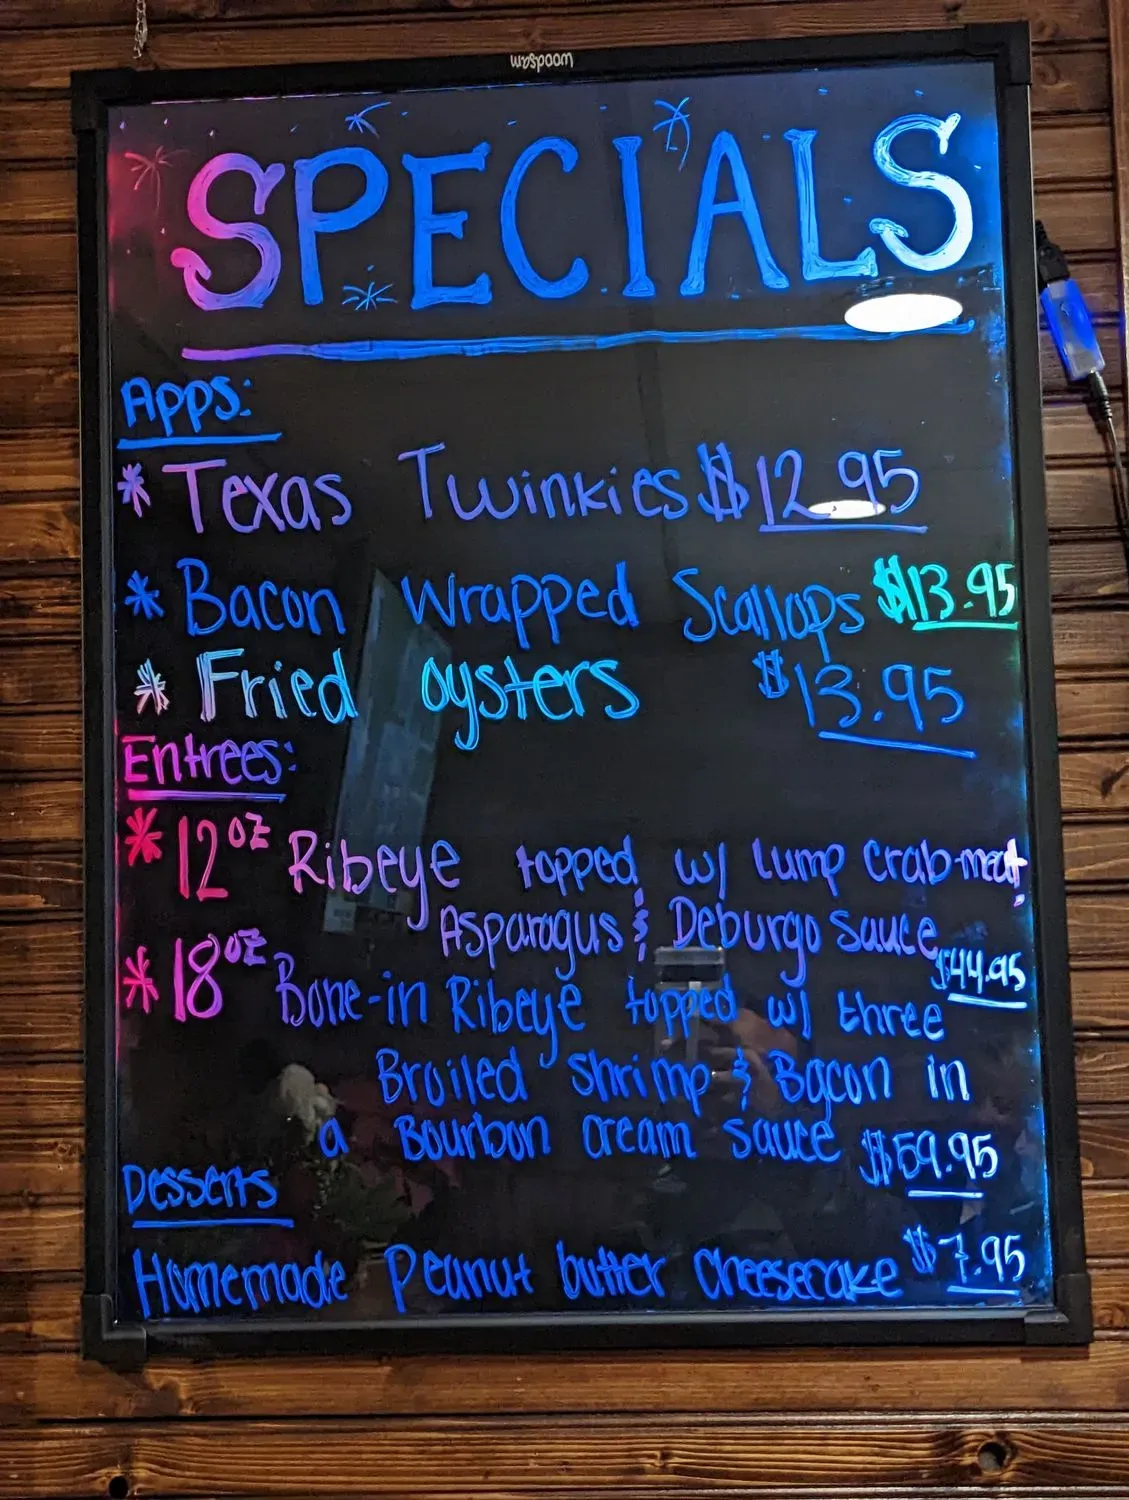 woodsam
SPECIALS
Apps:
* Texas Twinkies $12.95
* Bacon Wrapped Scallops $13.95
* Fried oysters $13.95
Entrees:
* 12oz Ribeye topped w/ lump crab-meat,
Asparagus & Deburgo sauce
$44.95
* 18oz Bone-in Ribeye topped w/ three
Broiled shrimp & Bacon in
a Bourbon cream sauce $59.95
Desserts
Homemade Peanut butter cheesecake $7.95